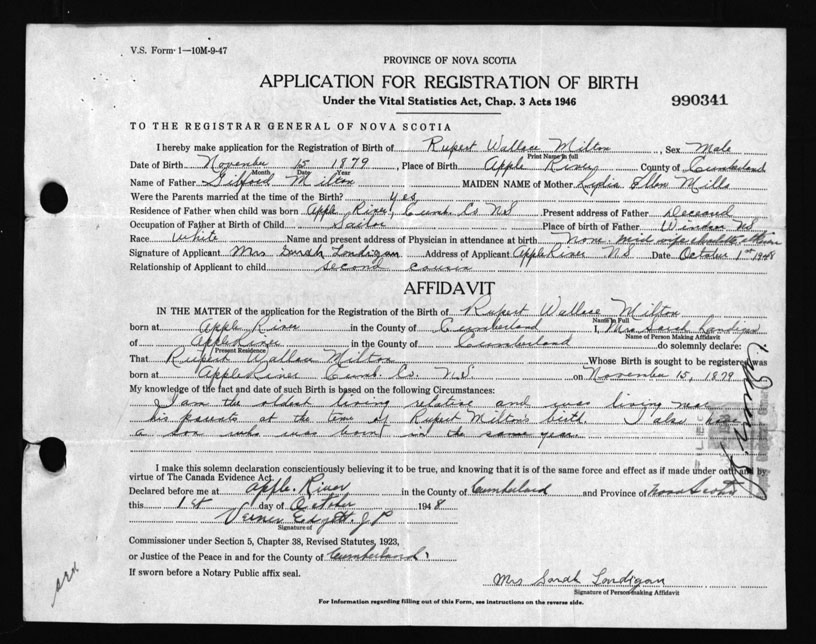 V.S. Form-1—10M-9-47
PROVINCE OF NOVA SCOTIA
APPLICATION FOR REGISTRATION OF BIRTH
Under the Vital Statistics Act, Chap. 3 Acts 1946
990341
TO THE REGISTRAR GENERAL OF NOVA SCOTIA
I hereby make application for the Registration of Birth of Rupert Wallace Milton, Sex Male
Print Name in full
Date of Birth November 15 1879, Place of Birth Apple River County of Cumberland
Month Date Year
Name of Father Gifford Milton MAIDEN NAME of Mother Lydia Ellen Mills
Were the Parents married at the time of the Birth? Yes
Residence of Father when child was born Apple River, Cumb. Co NS Present address of Father Deceased
Occupation of Father at Birth of Child Sailor Place of birth of Father Windsor NS
Race White Name and present address of Physician in attendance at birth None. midwife
Signature of Applicant Mrs Sarah Londigan Address of Applicant Apple River NS Date October 1st 1948
Relationship of Applicant to child second cousin
AFFIDAVIT
IN THE MATTER of the application for the Registration of the Birth of Rupert Wallace Milton
Name in Full
born at Apple River in the County of Cumberland I, Mrs Sarah Londigan
Name of Person Making Affidavit
of Apple River in the County of Cumberland do solemnly declare:
Present Residence
That Rupert Wallace Milton Whose Birth is sought to be registered was
born at Apple River Cumb. Co. NS on November 15, 1879
My knowledge of the fact and date of such Birth is based on the following Circumstances:
I am the oldest living relative and was living near
his parents at the time of Rupert Milton's birth. I also have
a son who was born in the same year.
I make this solemn declaration conscientiously believing it to be true, and knowing that it is of the same force and effect as if made under oath and by
virtue of The Canada Evidence Act.
Declared before me at Apple River in the County of Cumberland and Province of Nova Scotia
this 1st day of October 1948
Verner J.P.
Signature of
Commissioner under Section 5, Chapter 38, Revised Statutes, 1923,
or Justice of the Peace in and for the County of Cumberland
If sworn before a Notary Public affix seal.
Mrs Sarah Londigan
Signature of Person making Affidavit
For Information regarding filling out of this Form, see instructions on the reverse side.